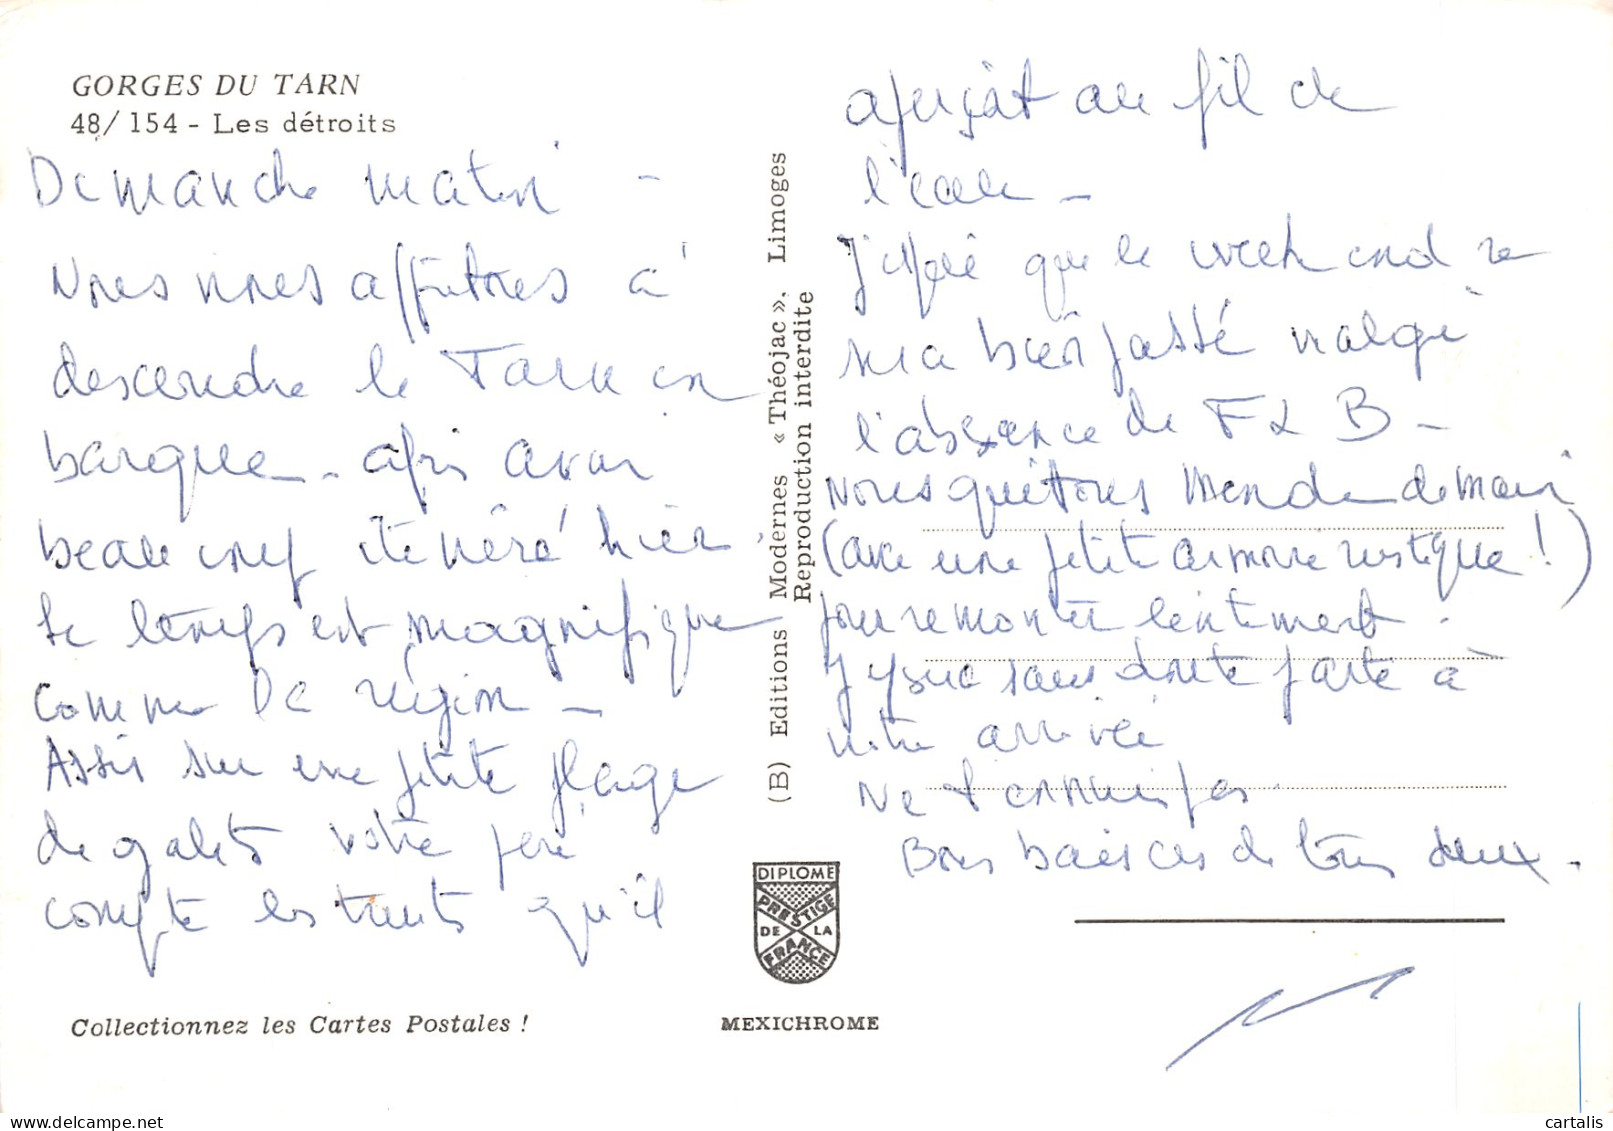 GORGES DU TARN
48/154 - Les détroits
Dimanche matin -
Nous nous apprêtons à
descendre le Tarn en
barque - après avoir
beaucoup itinéré hier.
Le temps est magnifique
comme la région -
Assis sur une petite plage
de galets votre père
compte les truites qu'il
Collectionnez les Cartes Postales !
(B) Editions Modernes « Théojac », Limoges
Reproduction interdite
DIPLOME
PRESTIGE
DE LA
FRANCE
MEXICHROME
aperçoit au fil de
l'eau -
J'espère que le week end se
sera bien passé malgré
l'absence de F & B -
Nous quittons Mende demain
(avec une petite armoire rustique !)
pour remonter lentement.
J'y serai sans doute parti à
votre arrivée
Ne t'ennuie pas.
Bons baisers de tous deux.
cartalis
delcampe.net